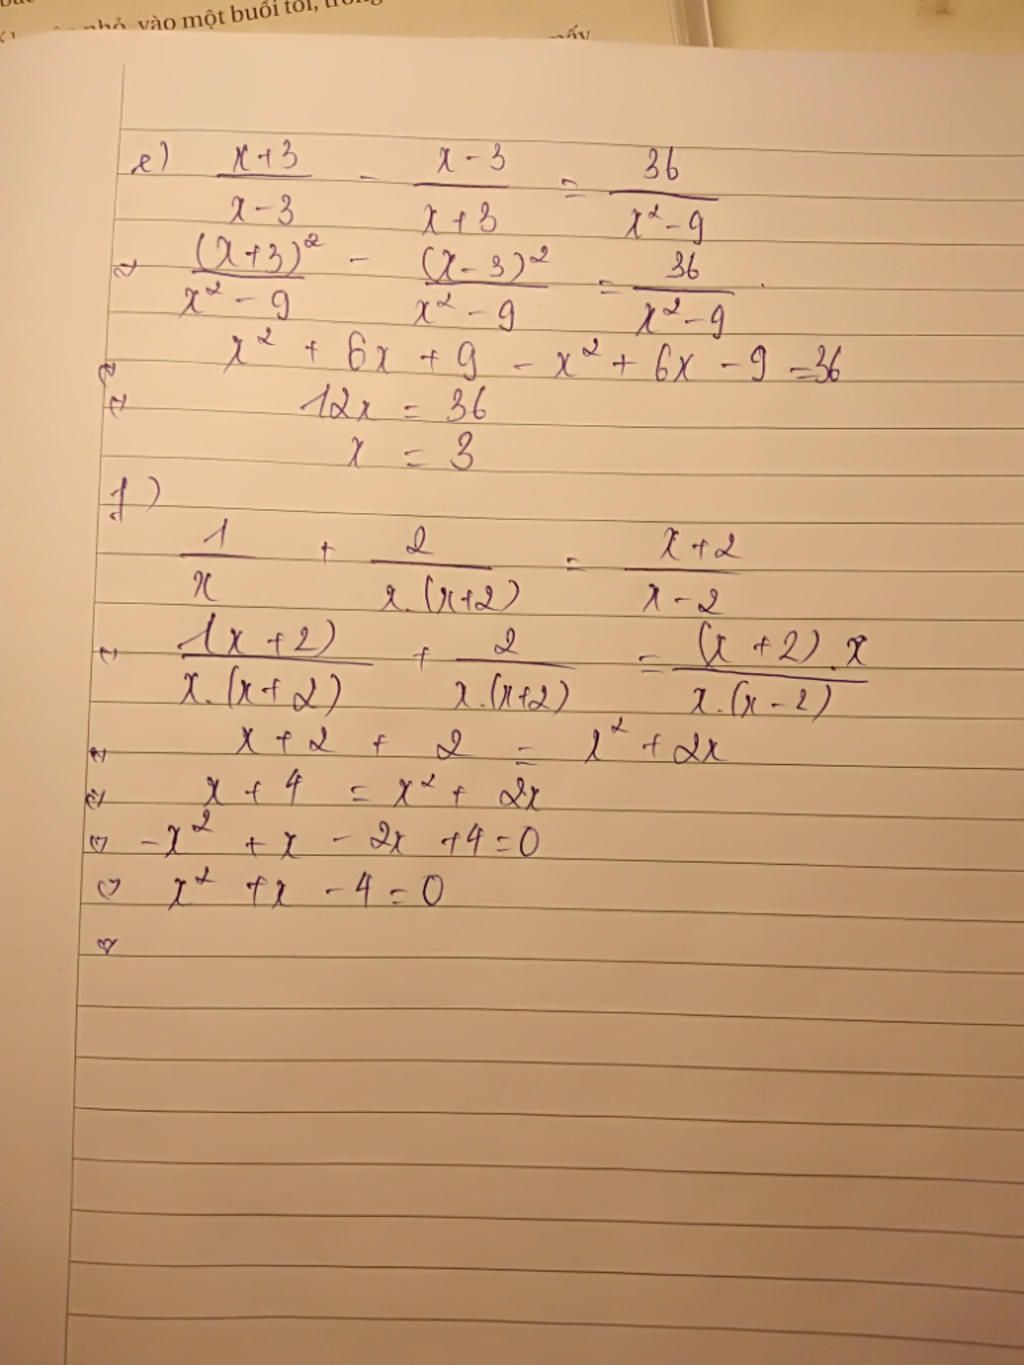 vào một buổi tối,
e) x+3/x-3 - x-3/x+3 = 36/x²-9
⇔ (x+3)²/x²-9 - (x-3)²/x²-9 = 36/x²-9
⇔ x² + 6x + 9 - x² + 6x - 9 = 36
⇔ 12x = 36
x = 3
f)
1/x + 2/x.(x+2) = x+2/x-2
⇔ 1(x+2)/x.(x+2) + 2/x.(x+2) = (x+2).x/x.(x-2)
⇔ x+2 + 2 = x² + 2x
⇔ x + 4 = x² + 2x
⇔ -x² + x - 2x + 4 = 0
⇔ x² + x - 4 = 0
⇔